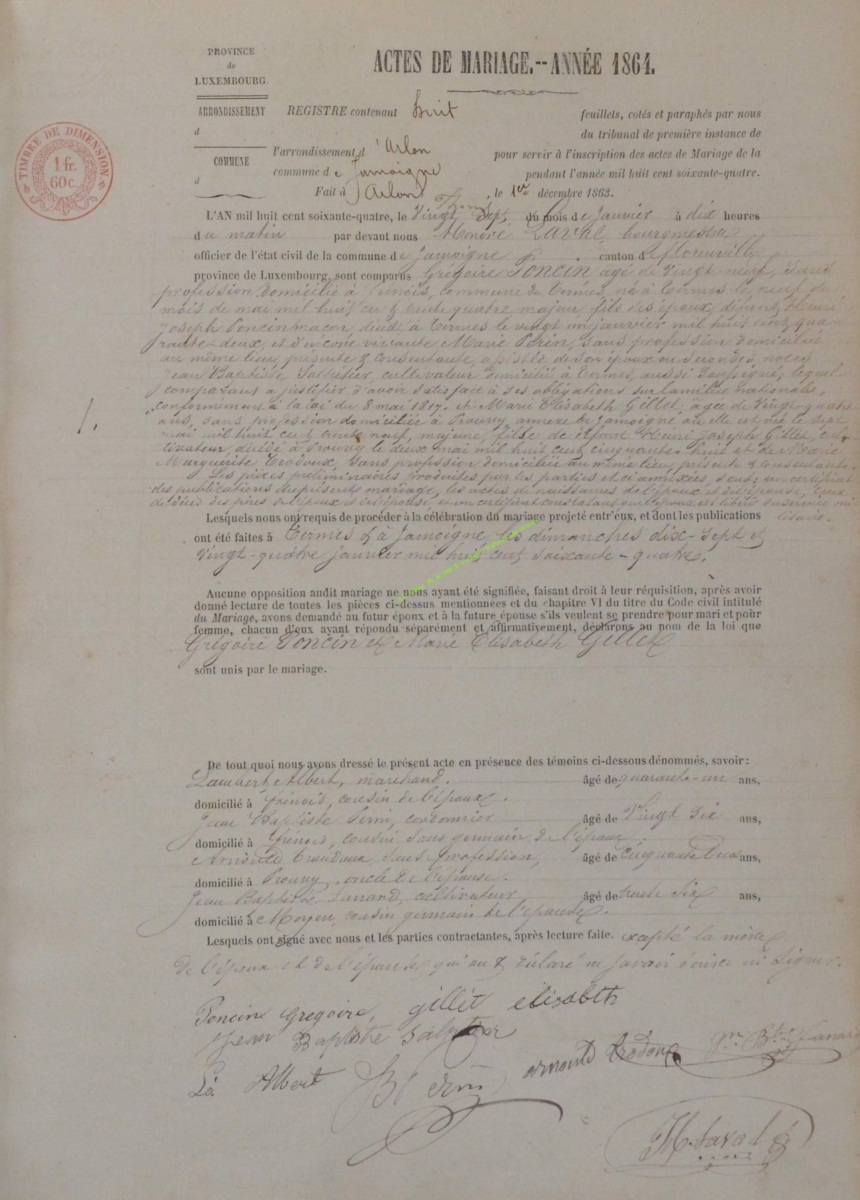 PROVINCE
de
LUXEMBOURG.
ARRONDISSEMENT
d
COMMUNE
d
TIMBRE DE DIMENSION
1 fr.
60c.
ACTES DE MARIAGE.--ANNÉE 1864.
REGISTRE contenant huit feuillets, cotés et paraphés par nous
du tribunal de première instance de
l'arrondissement d'Arlon pour servir à l'inscription des actes de Mariage de la
commune de Jamoigne pendant l'année mil huit cent soixante-quatre.
Fait à Arlon, le 1er décembre 1863.
L'AN mil huit cent soixante-quatre, le vingt sept du mois de janvier à dix heures
du matin par devant nous Honoré Laval, bourgmestre
officier de l'état civil de la commune de Jamoigne canton de Florenville
province de Luxembourg, sont comparus Grégoire Poncin âgé de vingt neuf, sans
profession, domicilié à Frénois, commune de Termes, né à Termes le neuf du
mois de mai mil huit cent trente quatre majeur, fils des époux, défunt Henri
Joseph Poncin maçon, décédé à Termes le vingt un janvier mil huit cent qua-
rante-deux, et vivante Marie Perin, sans profession domiciliée
au même lieu, présente & consentante, assistée de son époux en secondes noces
Jean Baptiste Salpétier, cultivateur domicilié à Termes, aussi lequel
comparant a justifié d'avoir satisfait à ses obligations sur la milice nationale,
conformément à la loi du 8 mai 1817. et Marie Elisabeth Gillet, agée de vingt quatre
ans, sans profession domiciliée à Prouvy annexe de Jamoigne où elle est née le sept
mai mil huit cent trente neuf, majeure, fille de défunt Henri Joseph Gillet, cul-
tivateur, décédé à Prouvy le deux mai mil huit cent cinquante-huit et de Marie
Marguerite sans profession domiciliée au même lieu, présente & consentante.
Les pièces préliminaires produites par les parties et ci annexées, sont: un certificat
des publications du présent mariage, les actes de naissances de l'époux et de l'épouse, ceux
de décès des pères de l'époux et de l'épouse et un certificat constatant que l'époux est libéré du service mi
litaire.
1.
Lesquels nous ont requis de procéder à la célébration du mariage projeté entr'eux, et dont les publications
ont été faites à Termes & à Jamoigne les dimanches dix-sept et
vingt-quatre janvier mil huit cent soixante-quatre.
Aucune opposition audit mariage ne nous ayant été signifiée, faisant droit à leur réquisition, après avoir
donné lecture de toutes les pièces ci-dessus mentionnées et du chapitre VI du titre du Code civil intitulé
du Mariage, avons demandé au futur époux et à la future épouse s'ils veulent se prendre pour mari et pour
femme, chacun d'eux ayant répondu séparément et affirmativement, déclarons au nom de la loi que
Grégoire Poncin et Marie Elisabeth Gillet
sont unis par le mariage.
De tout quoi nous avons dressé le présent acte en présence des témoins ci-dessous dénommés, savoir:
Lambert Albert, marchand. âgé de quarante-un ans,
domicilié à Frénois, cousin de l'époux.
Jean Baptiste cordonnier âgé de vingt six ans,
domicilié à Frénois, cousin sous germain de l'époux.
Arnould sans profession, âgé de cinquante deux ans,
domicilié à Prouvy oncle de l'épouse.
Jean Baptiste cultivateur âgé de trente six ans,
domicilié à Moyen, cousin germain de l'épouse.
Lesquels ont signé avec nous et les parties contractantes, après lecture faite. excepté la mère
de l'époux et de l'épouse qui ont déclaré ne savoir écrire ni signer.
Poncin Gregoire, gillet elisabeth
Jean Baptiste
La Albert
arnould
H. Laval